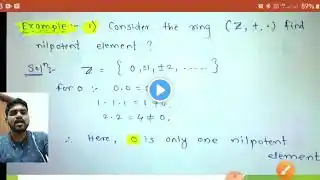 89%
Example:- 1) Consider the ring (Z, +, ·) find
nilpotent element ?
Solⁿ:- Z = { 0, ±1, ±2, ...... }
for 0 :- 0.0 = 
1.1.1 = 1 ≠ 0.
2.2 = 4 ≠ 0.
∴ Here, 0 is only one nilpotent
element